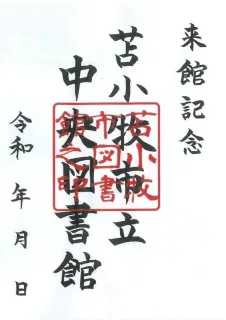 来館記念
苫小牧市立
中央図書館
苫小牧
市図書
館之印
令和 年 月 日